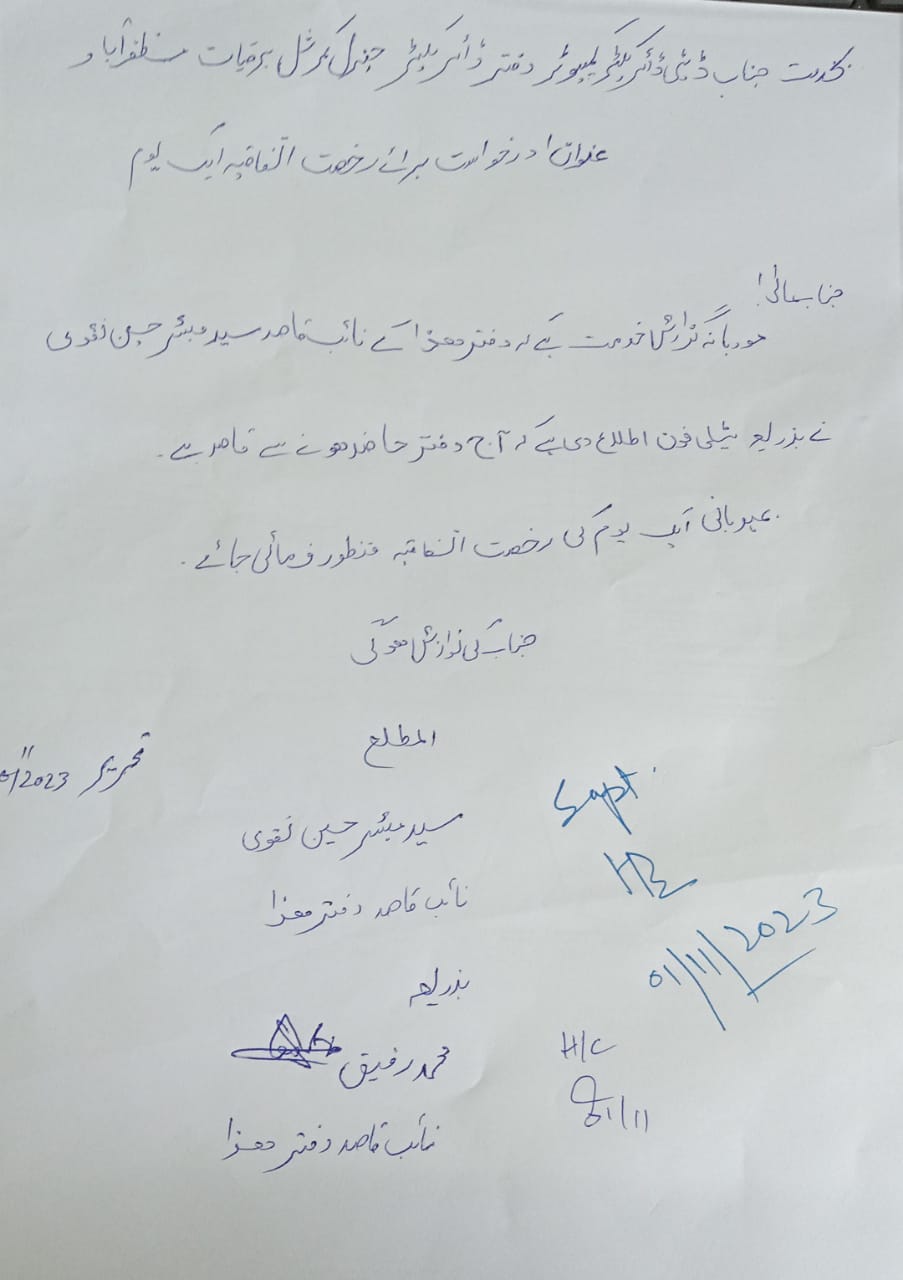 بخدمت جناب ڈپٹی ڈائریکٹر کمپیوٹر دفتر ڈائریکٹر جنرل کمرشل برقیات مظفرآباد
عنوان: درخواست برائے رخصت اتفاقیہ ایک یوم
جناب عالی!
مودبانہ گذارش خدمت ہے کہ دفتر ھذا کے نائب قاصد سید مبشر حسین نقوی
نے بذریعہ ٹیلی فون اطلاع دی ہے کہ آج دفتر حاضر ہونے سے قاصر ہے۔
مہربانی ایک یوم کی رخصت اتفاقیہ منظور فرمائی جائے۔
جناب کی نوازش ہوگی
المطلع
تحریر 11/2023
سید مبشر حسین نقوی
Sapt.
نائب قاصد دفتر ھذا
01/11/2023
بذریعہ
محمد رفیق
H/C
نائب قاصد دفتر ھذا
01/11